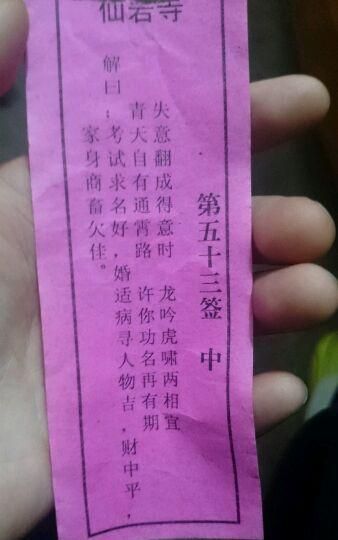 仙岩寺
第五十三签 中
失意翻成得意时 龙吟虎啸两相宜
青天自有通霄路 许你功名再有期
解曰：考试求名好，婚适病寻人物吉，财中平，
家身商畜欠佳。